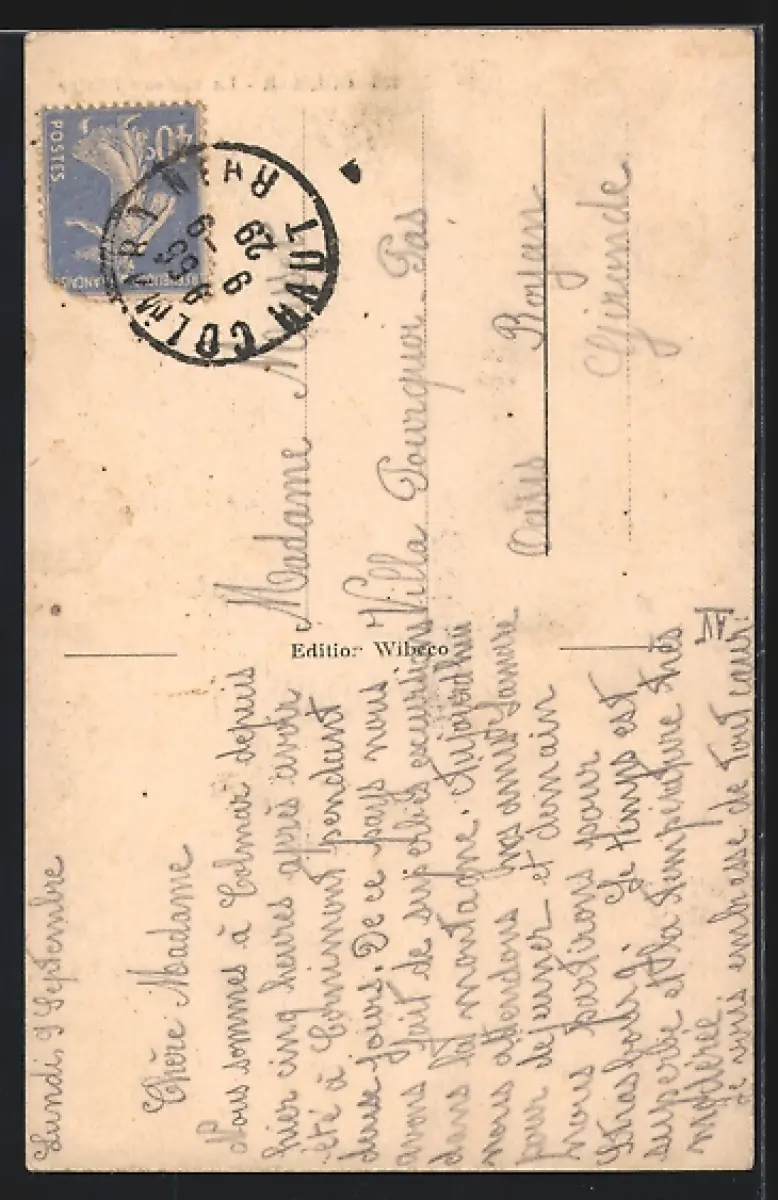 Lundi, 9 Septembre
Chère Madame
Nous sommes à Colmar depuis
hier cinq heures après avoir
été à Cornimont pendant
deux jours. De ce pays nous
avons fait de superbes excursions
dans la montagne. Aujourd'hui
nous attendons nos amis
pour déjeuner et demain
nous partirons pour
Strasbourg. Le temps est
superbe et la température très
modérée
Je vous embrasse de tout coeur.
Edition Wibeco
40c
POSTES
COLMAR
HAUT RHIN
29
9
Madame
Villa Pourquoi Pas
Royan
Gironde